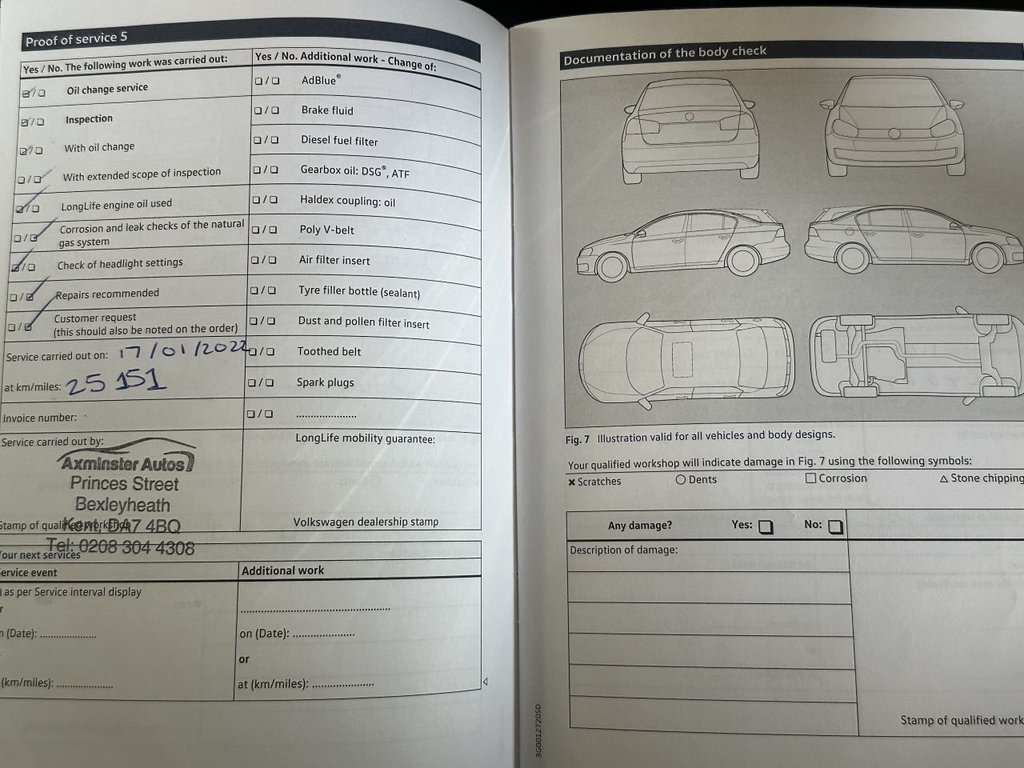 Proof of service 5
Yes / No. The following work was carried out:
Oil change service
Inspection
With oil change
With extended scope of inspection
LongLife engine oil used
Corrosion and leak checks of the natural
gas system
Check of headlight settings
Repairs recommended
Customer request
(this should also be noted on the order)
Service carried out on: 17/01/2022
at km/miles: 25 151
Invoice number:
Service carried out by:
Axminster Autos
Princes Street
Bexleyheath
Kent, DA7 4BQ
Stamp of qualified workshop
Tel: 0208 304 4308
Yes / No. Additional work - Change of:
AdBlue®
Brake fluid
Diesel fuel filter
Gearbox oil: DSG®, ATF
Haldex coupling: oil
Poly V-belt
Air filter insert
Tyre filler bottle (sealant)
Dust and pollen filter insert
Toothed belt
Spark plugs
....................
LongLife mobility guarantee:
Volkswagen dealership stamp
our next services
ervice event
as per Service interval display
r
n (Date): ....................
(km/miles): ....................
Additional work
..................................................
on (Date): ....................
or
at (km/miles): ....................
Documentation of the body check
Fig. 7 Illustration valid for all vehicles and body designs.
Your qualified workshop will indicate damage in Fig. 7 using the following symbols:
× Scratches ○ Dents □ Corrosion △ Stone chipping
Any damage? Yes: □ No: □
Description of damage:
Stamp of qualified work
3G0012720SD